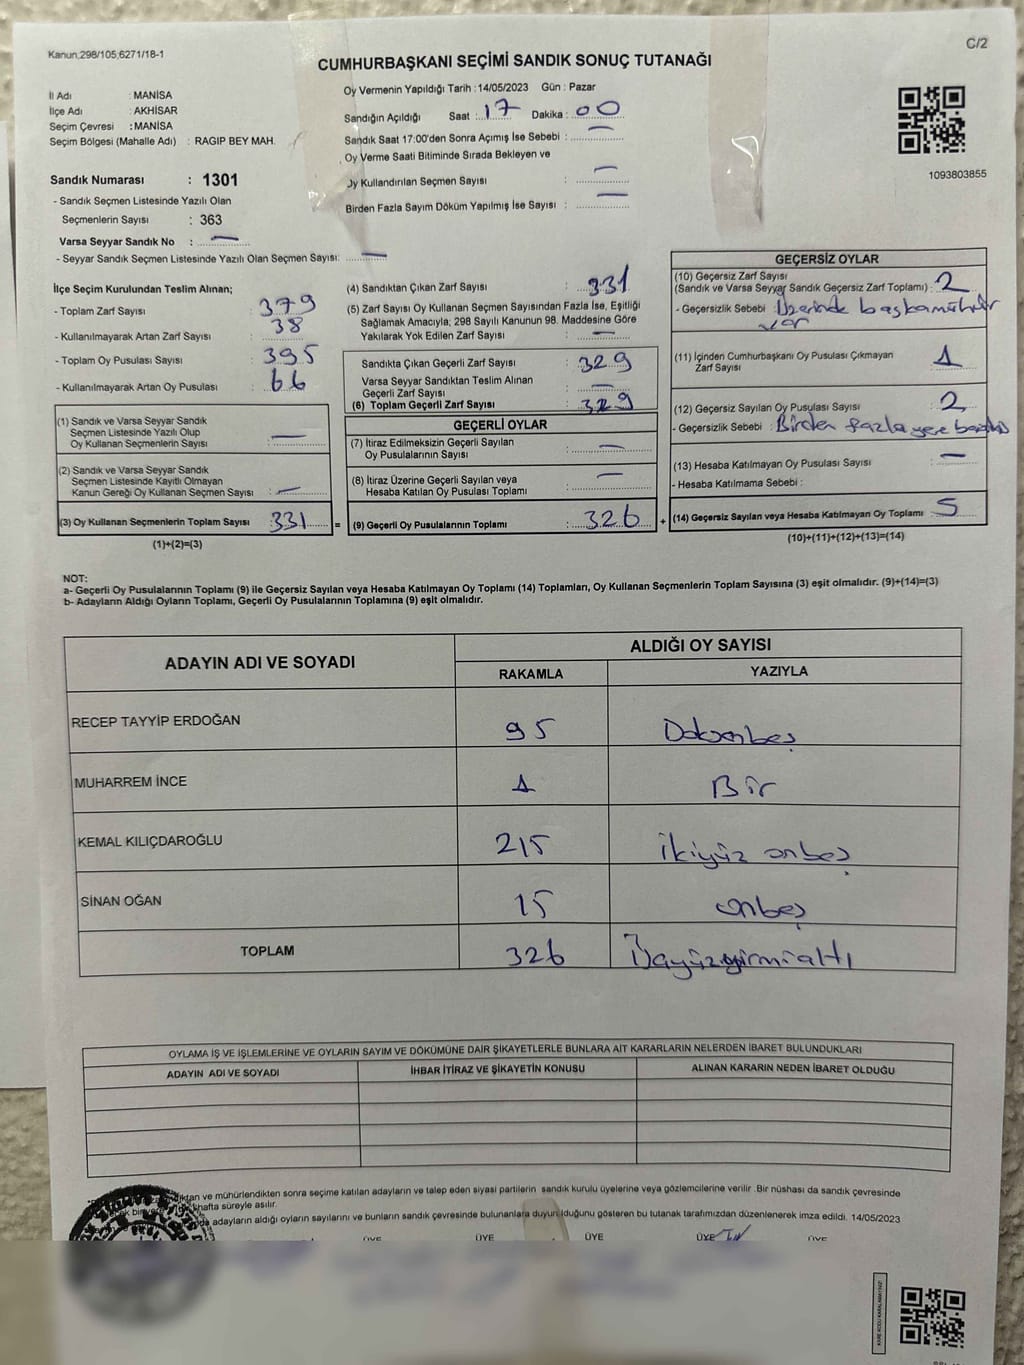 Kanun,298/105,6271/18-1
C/2
CUMHURBAŞKANI SEÇİMİ SANDIK SONUÇ TUTANAĞI
İl Adı : MANİSA
İlçe Adı : AKHİSAR
Seçim Çevresi : MANİSA
Seçim Bölgesi (Mahalle Adı) : RAGIP BEY MAH.
Oy Vermenin Yapıldığı Tarih : 14/05/2023 Gün : Pazar
Sandığın Açıldığı Saat : 17 Dakika : 00
Sandık Saat 17:00'den Sonra Açımış İse Sebebi : —
Oy Verme Saati Bitiminde Sırada Bekleyen ve
Oy Kullandırılan Seçmen Sayısı : —
Birden Fazla Sayım Döküm Yapılmış İse Sayısı : —
1093803855
Sandık Numarası : 1301
- Sandık Seçmen Listesinde Yazılı Olan
Seçmenlerin Sayısı : 363
Varsa Seyyar Sandık No : —
- Seyyar Sandık Seçmen Listesinde Yazılı Olan Seçmen Sayısı: —
İlçe Seçim Kurulundan Teslim Alınan;
- Toplam Zarf Sayısı : 379
- Kullanılmayarak Artan Zarf Sayısı : 38
- Toplam Oy Pusulası Sayısı : 395
- Kullanılmayarak Artan Oy Pusulası : 66
(1) Sandık ve Varsa Seyyar Sandık
Seçmen Listesinde Yazılı Olup
Oy Kullanan Seçmenlerin Sayısı : —
(2) Sandık ve Varsa Seyyar Sandık
Seçmen Listesinde Kayıtlı Olmayan
Kanun Gereği Oy Kullanan Seçmen Sayısı : —
(3) Oy Kullanan Seçmenlerin Toplam Sayısı : 331 =
(1)+(2)=(3)
(4) Sandıktan Çıkan Zarf Sayısı : 331
(5) Zarf Sayısı Oy Kullanan Seçmen Sayısından Fazla İse, Eşitliği
Sağlamak Amacıyla; 298 Sayılı Kanunun 98. Maddesine Göre
Yakılarak Yok Edilen Zarf Sayısı : —
Sandıkta Çıkan Geçerli Zarf Sayısı : 329
Varsa Seyyar Sandıktan Teslim Alınan
Geçerli Zarf Sayısı : —
(6) Toplam Geçerli Zarf Sayısı : 329
GEÇERLİ OYLAR
(7) İtiraz Edilmeksizin Geçerli Sayılan
Oy Pusulalarının Sayısı : —
(8) İtiraz Üzerine Geçerli Sayılan veya
Hesaba Katılan Oy Pusulası Toplamı : —
(9) Geçerli Oy Pusulalarının Toplamı : 326 +
GEÇERSİZ OYLAR
(10) Geçersiz Zarf Sayısı
(Sandık ve Varsa Seyyar Sandık Geçersiz Zarf Toplamı) : 2
- Geçersizlik Sebebi : Üzerinde başka mühür
var
(11) İçinden Cumhurbaşkanı Oy Pusulası Çıkmayan
Zarf Sayısı : 1
(12) Geçersiz Sayılan Oy Pusulası Sayısı : 2
- Geçersizlik Sebebi : Birden fazla yere
(13) Hesaba Katılmayan Oy Pusulası Sayısı : —
- Hesaba Katılmama Sebebi :
(14) Geçersiz Sayılan veya Hesaba Katılmayan Oy Toplamı : 5
(10)+(11)+(12)+(13)=(14)
NOT:
a- Geçerli Oy Pusulalarının Toplamı (9) ile Geçersiz Sayılan veya Hesaba Katılmayan Oy Toplamı (14) Toplamları, Oy Kullanan Seçmenlerin Toplam Sayısına (3) eşit olmalıdır. (9)+(14)=(3)
b- Adayların Aldığı Oyların Toplamı, Geçerli Oy Pusulalarının Toplamına (9) eşit olmalıdır.
ADAYIN ADI VE SOYADI
ALDIĞI OY SAYISI
RAKAMLA YAZIYLA
RECEP TAYYİP ERDOĞAN 95 Doksanbeş
MUHARREM İNCE 1 Bir
KEMAL KILIÇDAROĞLU 215 ikiyüz onbeş
SİNAN OĞAN 15 onbeş
TOPLAM 326 Üçyüzyirmialtı
OYLAMA İŞ VE İŞLEMLERİNE VE OYLARIN SAYIM VE DÖKÜMÜNE DAİR ŞİKAYETLERLE BUNLARA AİT KARARLARIN NELERDEN İBARET BULUNDUKLARI
ADAYIN ADI VE SOYADI İHBAR İTİRAZ VE ŞİKAYETİN KONUSU ALINAN KARARIN NEDEN İBARET OLDUĞU
ve mühürlendikten sonra seçime katılan adayların ve talep eden siyasi partilerin sandık kurulu üyelerine veya gözlemcilerine verilir .Bir nüshası da sandık çevresinde
hafta süreyle asılır.
adayların aldığı oyların sayılarını ve bunların sandık çevresinde bulunanlara duyurulduğunu gösteren bu tutanak tarafımızdan düzenlenerek imza edildi. 14/05/2023
ÜYE ÜYE ÜYE ÜYE ÜYE